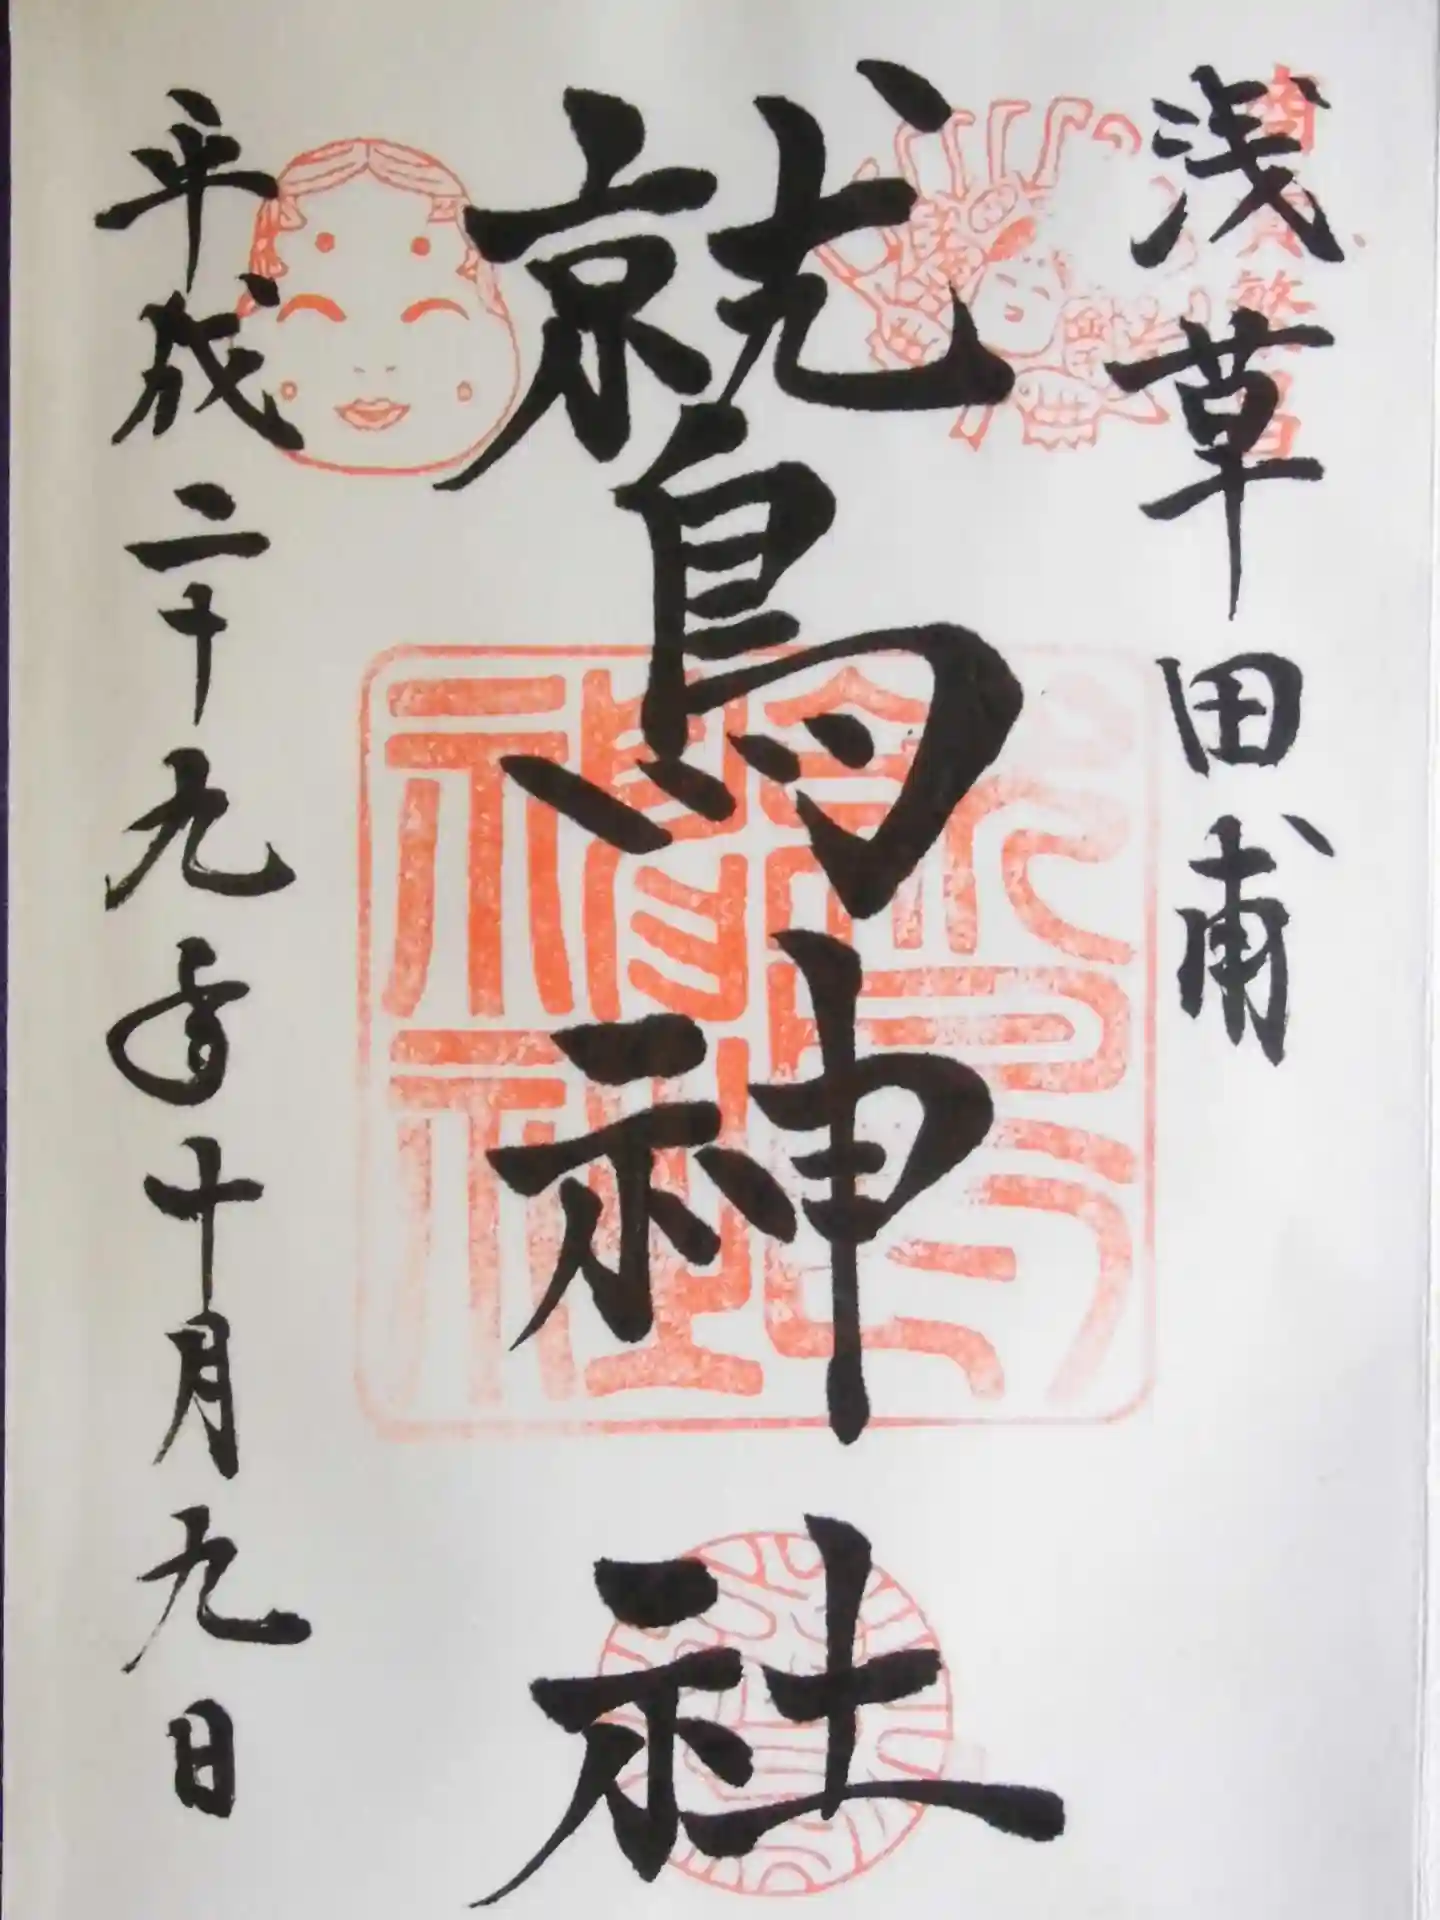 浅草田甫
鷲神社
平成二十九年十月九日